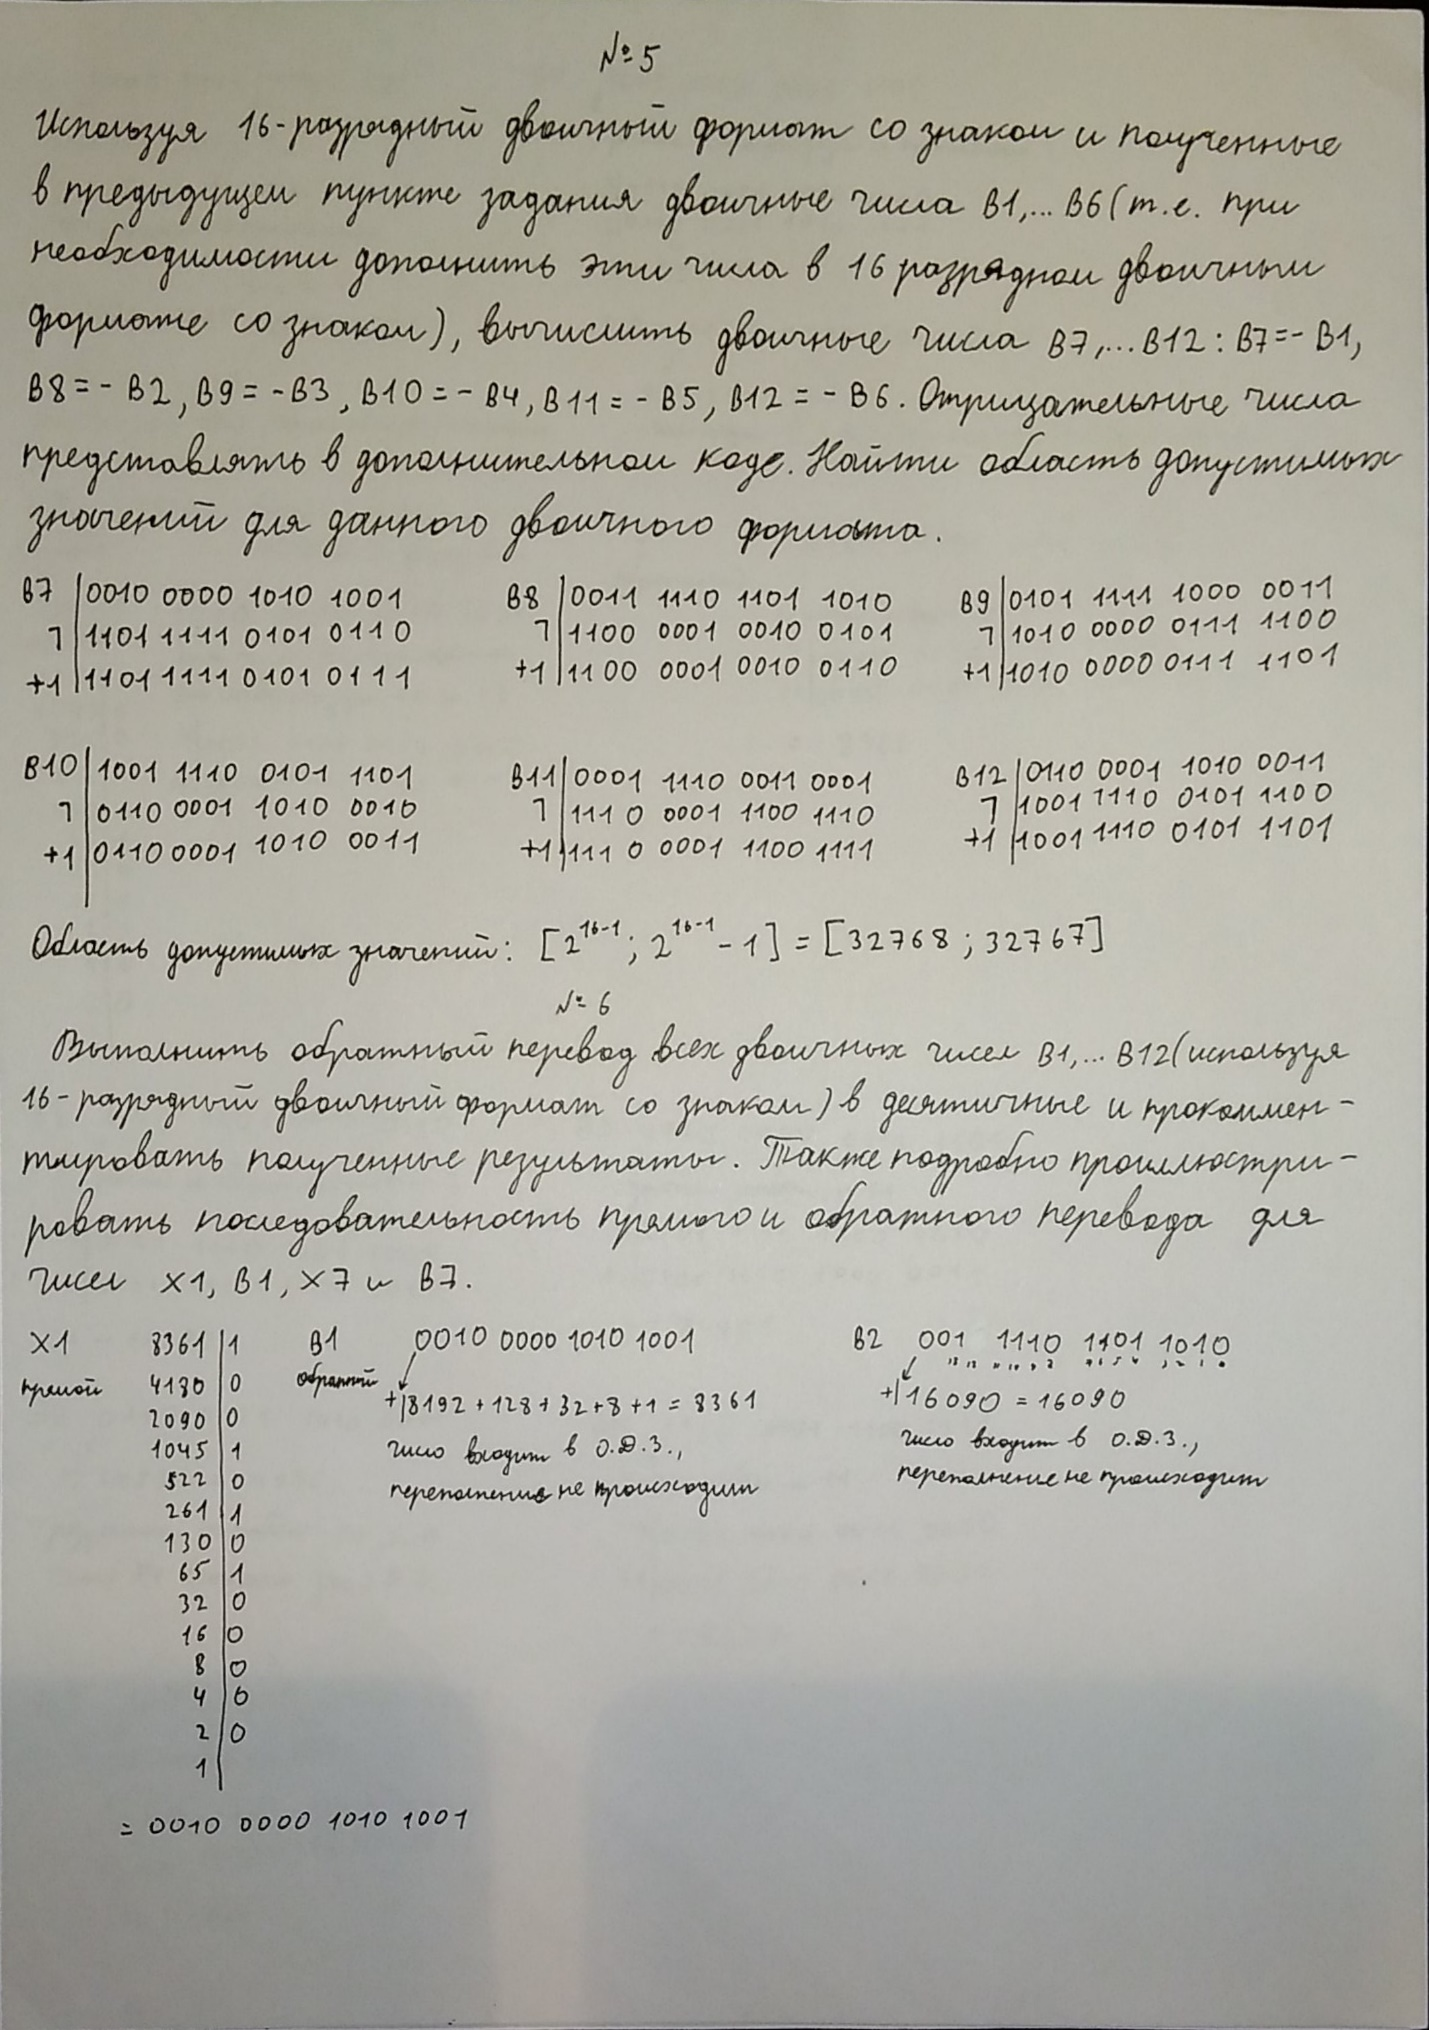 № 5
Используя 16-разрядный двоичный формат со знаком и полученные
в предыдущем пункте задания двоичные числа B1,... B6 (т.е. при
необходимости дополнить эти числа в 16 разрядном двоичным
формате со знаком), вычислить двоичные числа B7,...B12: B7=-B1,
B8=-B2, B9=-B3, B10=-B4, B11=-B5, B12=-B6. Отрицательные числа
представлять в дополнительном коде. Найти область допустимых
значений для данного двоичного формата.
B7 0010 0000 1010 1001 B8 0011 1110 1101 1010 B9 0101 1111 1000 0011
¬ 1101 1111 0101 0110 ¬ 1100 0001 0010 0101 ¬ 1010 0000 0111 1100
+1 1101 1111 0101 0111 +1 1100 0001 0010 0110 +1 1010 0000 0111 1101
B10 1001 1110 0101 1101 B11 0001 1110 0011 0001 B12 0110 0001 1010 0011
¬ 0110 0001 1010 0010 ¬ 1110 0001 1100 1110 ¬ 1001 1110 0101 1100
+1 0110 0001 1010 0011 +1 1110 0001 1100 1111 +1 1001 1110 0101 1101
Область допустимых значений: [2^16-1; 2^16-1 - 1] = [32768; 32767]
№ 6
Выполнить обратный перевод всех двоичных чисел B1,... B12 (используя
16-разрядный двоичный формат со знаком) в десятичные и прокоммен-
тировать полученные результаты. Также подробно проиллюстри-
ровать последовательность прямого и обратного перевода для
чисел X1, B1, X7 и B7.
X1 8361 1 B1 0010 0000 1010 1001 B2 001 1110 1101 1010
прямой 4180 0 обратный +8192+128+32+8+1=8361 +16090 = 16090
2090 0
1045 1 число входит в О.Д.З., число входит в О.Д.З.,
522 0 переполнение не происходит переполнение не происходит
261 1
130 0
65 1
32 0
16 0
8 0
4 0
2 0
1
= 0010 0000 1010 1001